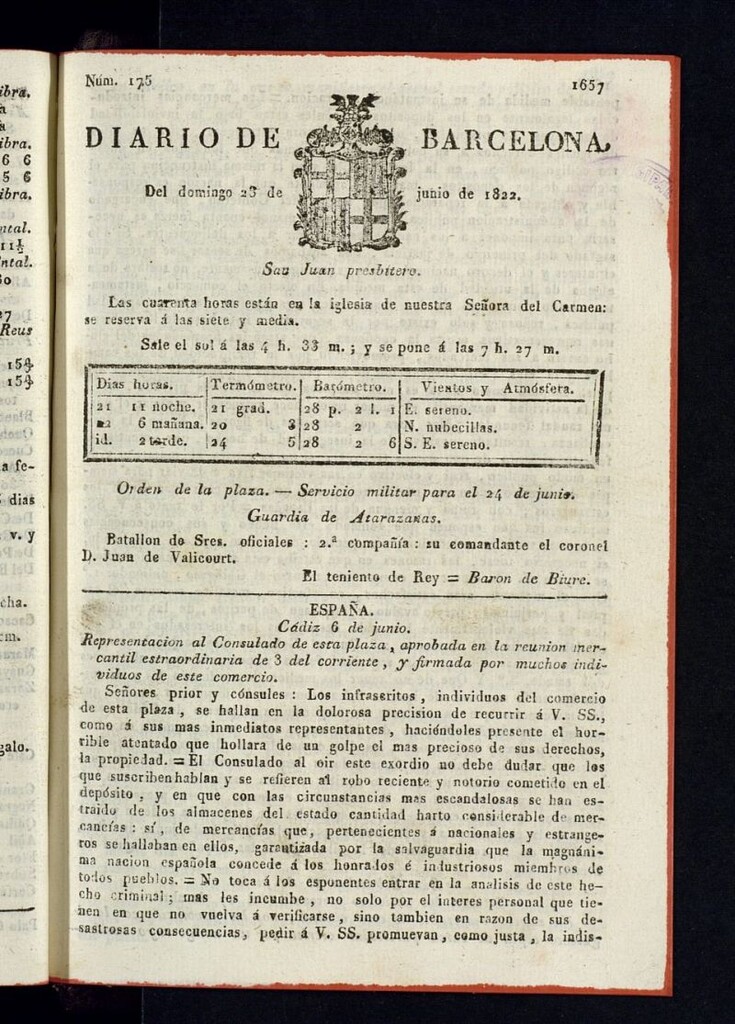 Núm. 175
1657
DIARIO DE BARCELONA,
Del domingo 23 de junio de 1822.
San Juan presbitero.
Las cuarenta horas están en la iglesia de nuestra Señora del Carmen:
se reserva á las siete y media.
Sale el sol á las 4 h. 33 m.; y se pone á las 7 h. 27 m.
Dias horas. Termómetro. Barómetro. Vientos y Atmósfera.
21 11 noche. 21 grad. 28 p. 2 l. 1 E. sereno.
22 6 mañana. 20 3 28 2 N. nubecillas.
id. 2 tarde. 24 5 28 2 6 S. E. sereno.
Orden de la plaza. — Servicio militar para el 24 de junio.
Guardia de Atarazanas.
Batallon de Sres. oficiales : 2.ª compañía : su comandante el coronel
D. Juan de Valicourt.
El teniento de Rey = Baron de Biure.
ESPAÑA.
Cádiz 6 de junio.
Representacion al Consulado de esta plaza, aprobada en la reunion mer-
cantil estraordinaria de 3 del corriente, y firmada por muchos indi-
viduos de este comercio.
Señores prior y cónsules : Los infrascritos, individuos del comercio
de esta plaza, se hallan en la dolorosa precision de recurrir á V. SS.,
como á sus mas inmediatos representantes, haciéndoles presente el hor-
rible atentado que hollara de un golpe el mas precioso de sus derechos,
la propiedad. = El Consulado al oir este exordio no debe dudar que los
que suscriben hablan y se refieren al robo reciente y notorio cometido en el
depósito, y en que con las circunstancias mas escandalosas se han es-
traido de los almacenes del estado cantidad harto considerable de mer-
cancías: sí, de mercancías que, pertenecientes á nacionales y estrange-
ros se hallaban en ellos, garantizada por la salvaguardia que la magnáni-
ma nacion española concede á los honrados é industriosos miembros de
todos pueblos. = No toca á los esponentes entrar en la analisis de este he-
cho criminal; mas les incumbe, no solo por el interes personal que tie-
nen en que no vuelva á verificarse, sino tambien en razon de sus de-
sastrosas consecuencias, pedir á V. SS. promuevan, como justa, la indis-
ibra.
ibra.
6 6
5 6
ibra.
ntal.
11½
ntal.
Reus
a fe-
dias
v. y
cha.
galo.